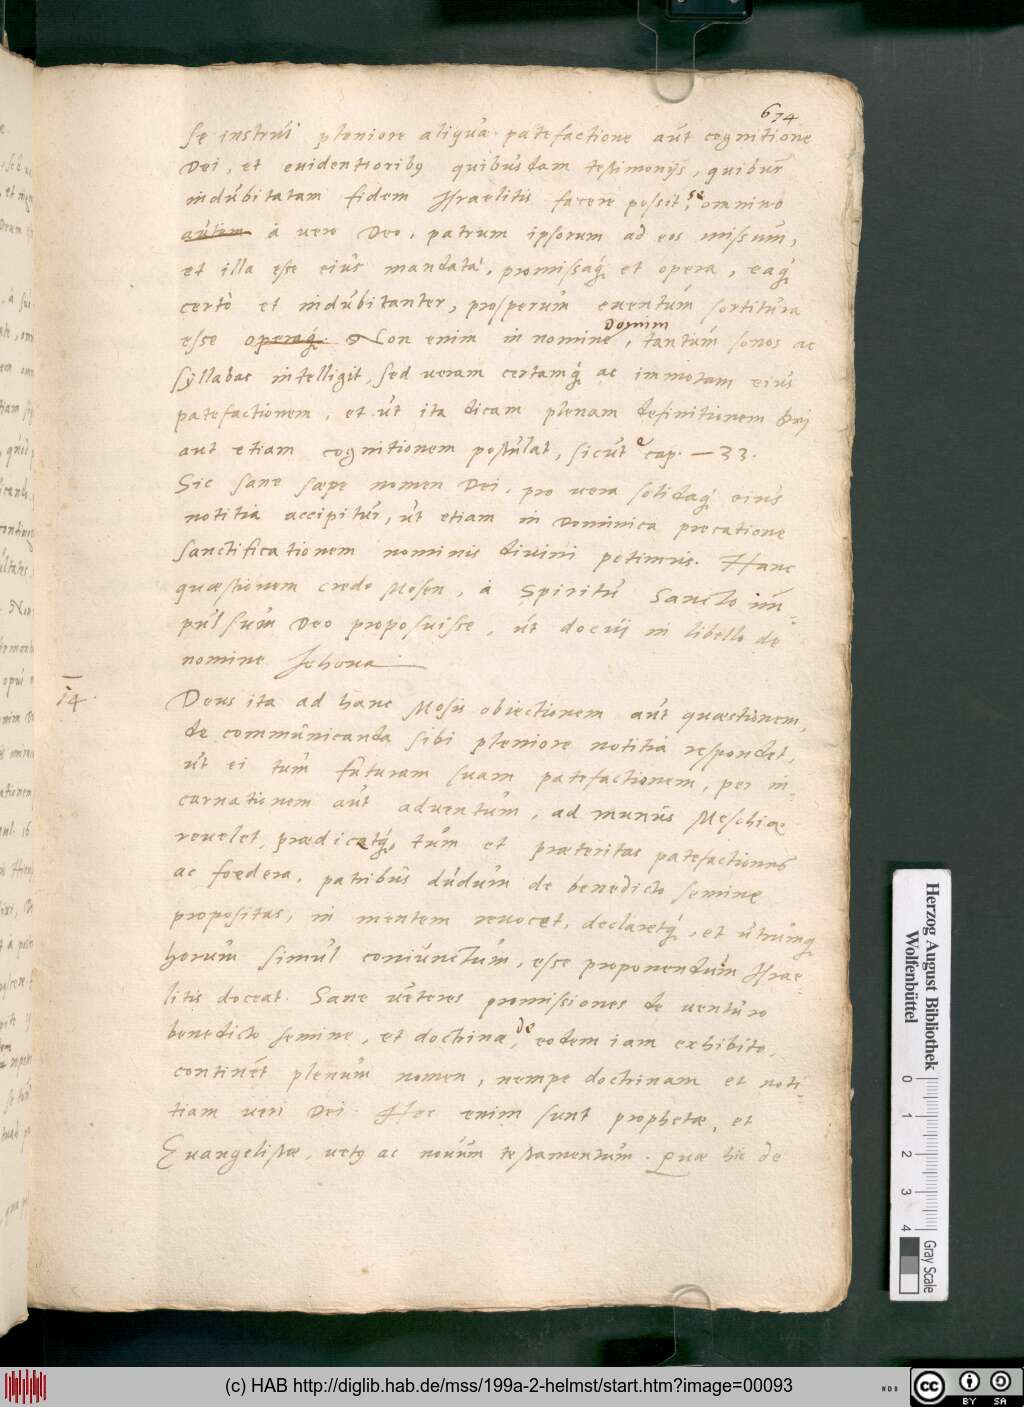 674
se instrui pleniore aliqua patefactione aut cognitione
Dei, et euidentioribꝰ quibusdam testimonijs, quibus
indubitatam fidem Israelitis facere possit, se omnino
autem à vere Deo, patrum ipsorum ad eos missum,
et illa esse eius mandata, promissaq́ꝫ et opera, eaq́ꝫ
certò et indubitanter, prosperum euentum sortitura
esse operaq́ꝫ. Non enim in nomine Domini, tantum sonos ac
syllabas intelligit, sed veram certamq́ꝫ ac immotam eius
patefactionem, et ut ita dicam plenam definitionem Dei
aut etiam cognitionem postulat, sicut e cap. — 33.
Sic sane sæpe nomen Dei, pro vera solidaq́ꝫ eius
notitia accipitur, ut etiam in Dominica precatione
sanctificationem nominis diuini petimus. Hanc
quæstionem credo Mosen, à Spiritu Sancto im-
pulsum Deo proposuisse, ut docui in libello de
nomine Jehoua
14. Deus ita ad hanc Mosis obiectionem aut quæstionem,
de communicanda sibi pleniore notitia respondet,
ut ei tum futuram suam patefactionem, per in-
carnationem aut aduentum, ad munus Meschiæ
reuelet, prædicetq́ꝫ, tum et præteritas patefactiones
ac foedera, patribus dudum de benedicto semine
propositas, in mentem reuocet, declaretq́ꝫ, et utrumq́ꝫ
horum simul coniunctum, esse proponendum Israe-
litis doceat. Sane veteres promissiones de venturo
benedicto semine, et doctrina, de eodem iam exhibito,
continet plenum nomen, nempe doctrinam et noti-
tiam veri Dei. Hoc enim sunt prophetæ, et
Euangelistæ, vetꝰ ac nouum testamentum. Quæ hic de
Herzog August Bibliothek
Wolfenbüttel
0 1 2 3 4
Gray Scale
(c) HAB http://diglib.hab.de/mss/199a-2-helmst/start.htm?image=00093
cc BY SA